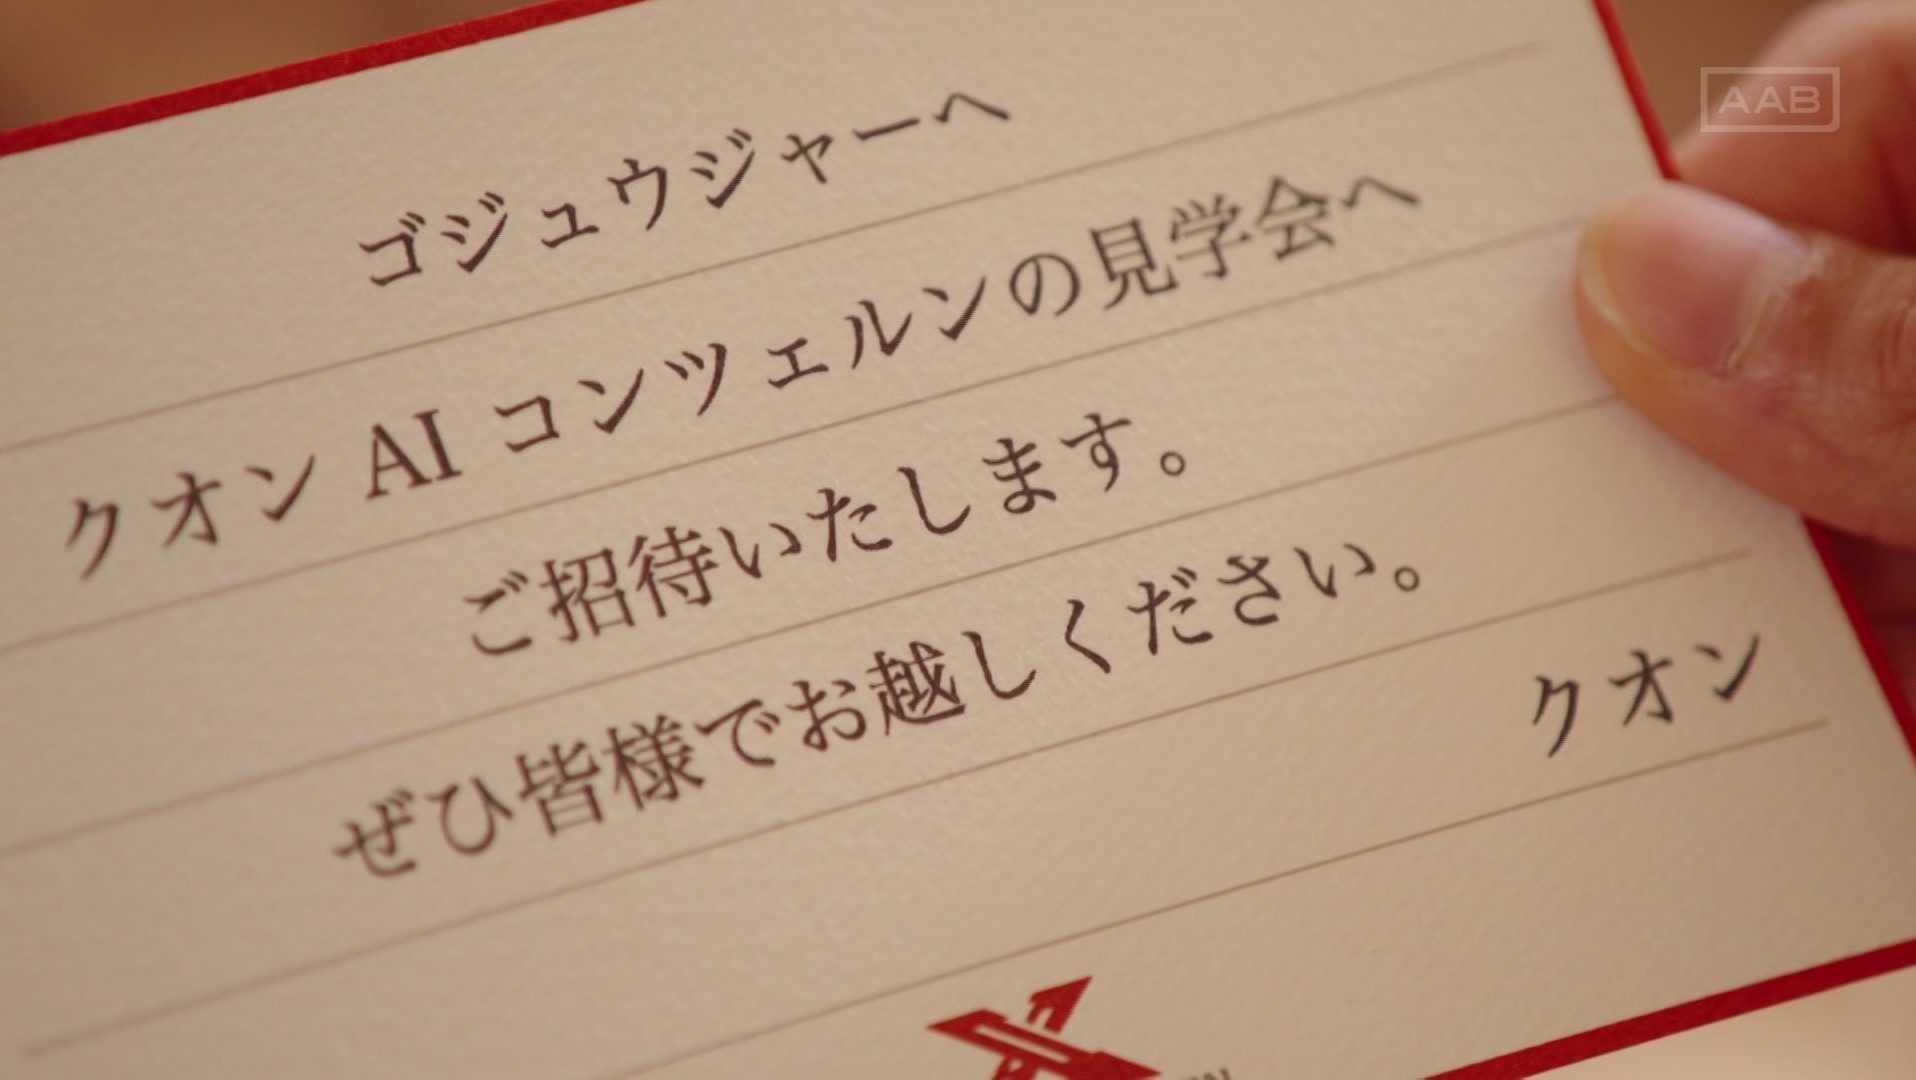 AAB
ゴジュウジャーへ
クオン AI コンツェルンの見学会へ
ご招待いたします。
ぜひ皆様でお越しください。
クオン